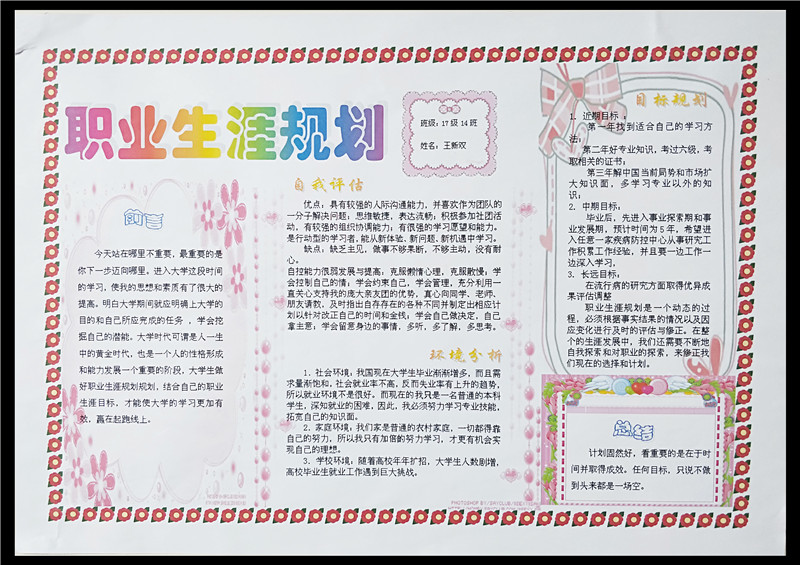 职业生涯规划
班级：17级14班
姓名：王新双
前言
今天站在哪里不重要，最重要的是
你下一步迈向哪里，进入大学这段时间
的学习，使我的思想和素质有了很大的
提高。明白大学期间就应明确上大学的
目的和自己所应完成的任务，学会挖
掘自己的潜能。大学时代可谓是人一生
中的黄金时代，也是一个人的性格形成
和能力发展一个重要的阶段，大学生做
好职业生涯规划规划，结合自己的职业
生涯目标，才能使大学的学习更加有
效，赢在起跑线上。
自我评估
优点：具有较强的人际沟通能力，并喜欢作为团队的
一分子解决问题；思维敏捷，表达流畅；积极参加社团活
动，有较强的组织协调能力；有很强的学习愿望和能力。
是行动型的学习者，能从新体验、新问题、新机遇中学习。
缺点：缺乏主见，做事不够果断，不够主动，没有耐
心。
自控能力很弱发展与提高；克服懒情心理，克服散慢；学
会控制自己的情；学会约束自己，学会管理，充分利用一
直关心支持我的庞大亲友团的优势，真心向同学、老师、
朋友请教，及时指出自存存在的各种不同并制定出相应计
划以针对改正自己的时间和金钱；学会自己做决定，自己
拿主意；学会留意身边的事情，多听，多了解，多思考。
环境分析
1．社会环境；我国现在大学生毕业渐渐增多，而且需
求量渐饱和，社会就业率不高，反而失业率有上升的趋势，
所以就业环境不是很好。而现在的我只是一名普通的本科
学生，深知就业的困难，因此，我必须努力学习专业技能，
拓宽自己的知识面。
2．家庭环境；我们家是普通的农村家庭，一切都得靠
自己的努力，所以只有加倍的努力学习，才更有机会实
现自己的理想。
3．学校环境；随着高校年年扩招，大学生人数剧增，
高校毕业生就业工作遇到巨大挑战。
目标规划
1．近期目标：
第一年找到适合自己的学习方
法；
第二年好专业知识，考过六级，考
取相关的证书；
第三年解中国当前局势和市场扩
大知识面，多学习专业以外的知
识；
2．中期目标：
毕业后，先进入事业探索期和事
业发展期，预计时间为5年，希望进
入任意一家疾病防控中心从事研究工
作积累工作经验，并且要一边工作一
边深入学习。
3．长远目标：
在流行病的研究方面取得优异成
果评估调整
职业生涯规划是一个动态的过
程，必须根据事实结果的情况以及因
应变化进行及时的评估与修正。在整
个的生涯发展中，我们还需要不断地
自我探索和对职业的探索，来修正我
们现在的选择和计划。
总结
计划固然好，看重要的是在于时
间并取得成效。任何目标，只说不做
到头来都是一场空。